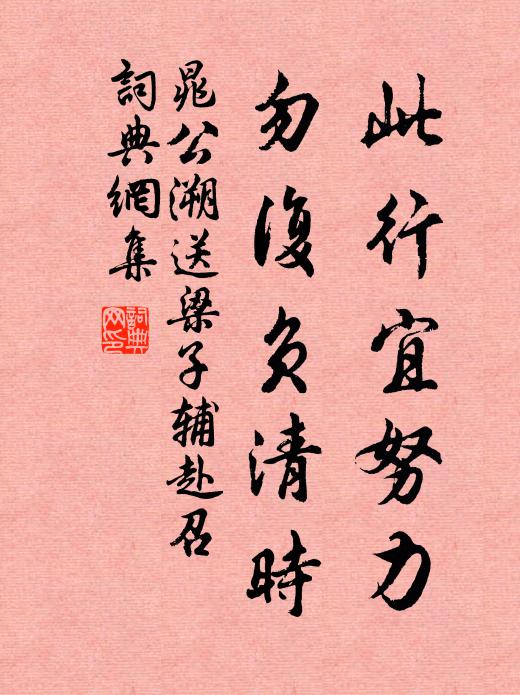 此行宜努力
勿復負清時
晁公溯送梁子辅赴召
詞典網集
詞典网印